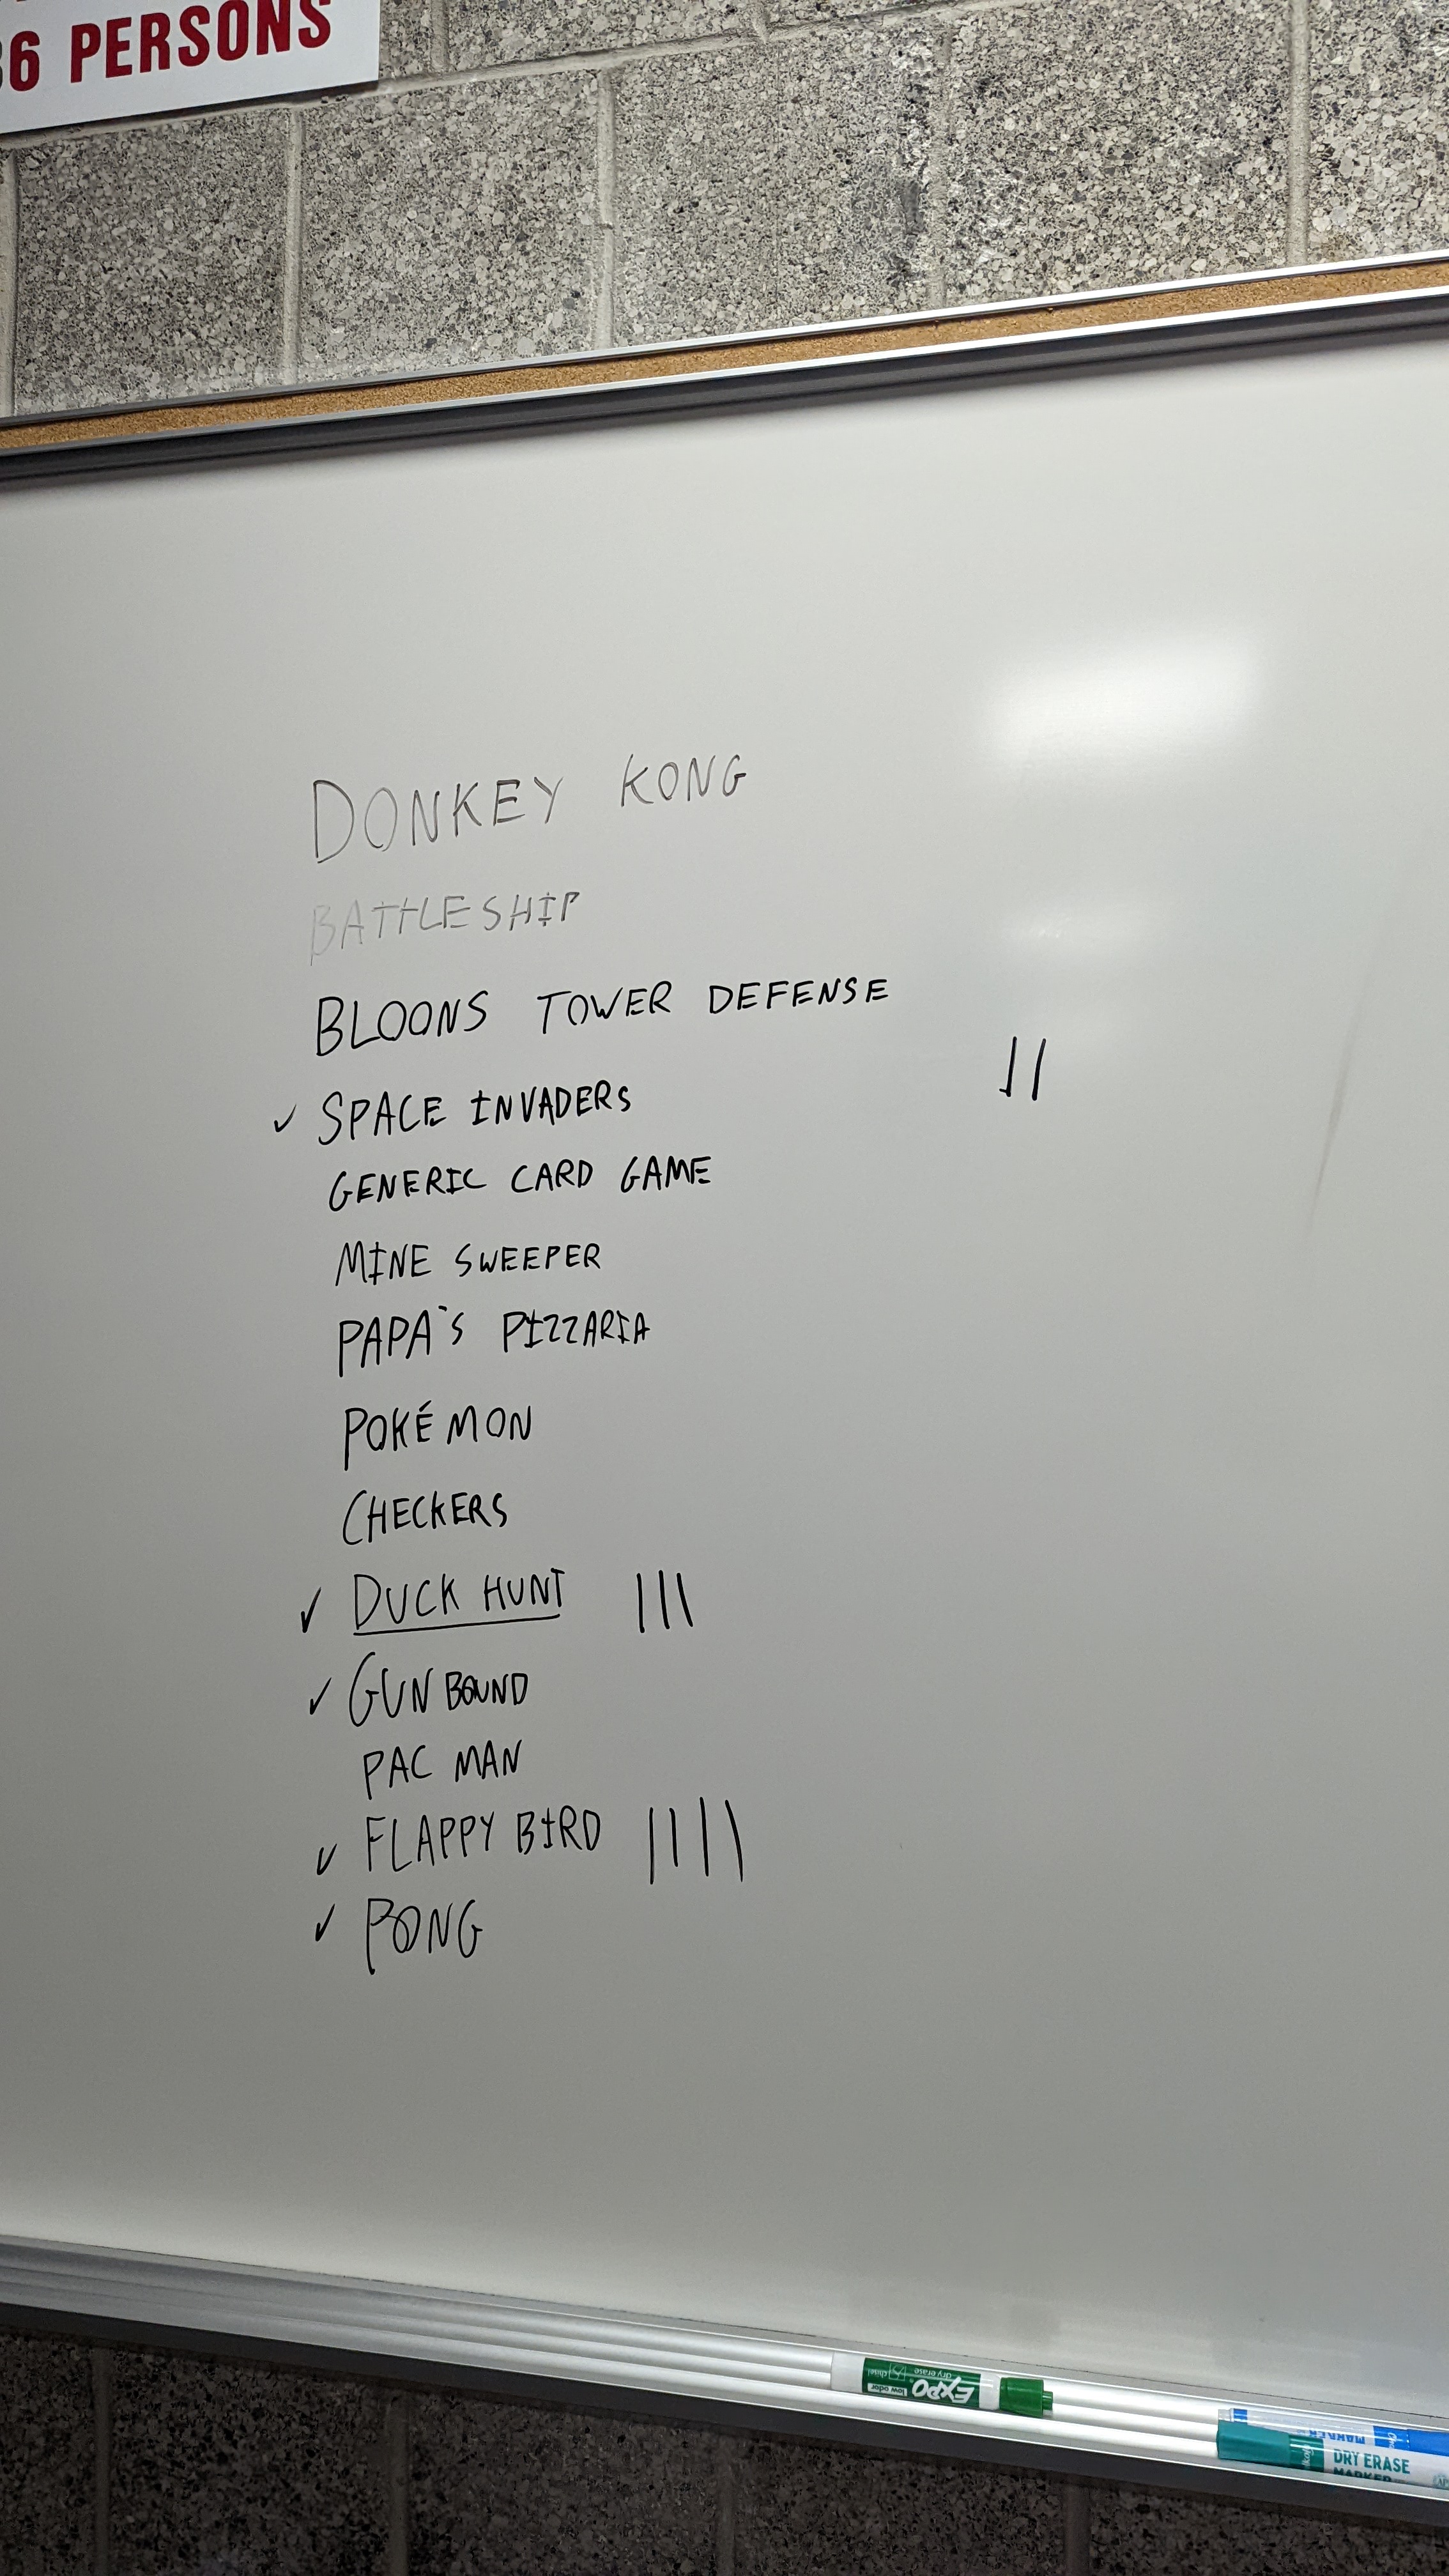 6 PERSONS
DONKEY KONG
BATTLESHIP
BLOONS TOWER DEFENSE
✓ SPACE INVADERS ||
GENERIC CARD GAME
MINE SWEEPER
PAPA'S PIZZARIA
POKÉMON
CHECKERS
✓ DUCK HUNT |||
✓ GUNBOUND
PAC MAN
✓ FLAPPY BIRD ||||
✓ PONG
EXPO
low odor
dry erase
chisel
MARKER
DRY ERASE
MARKER